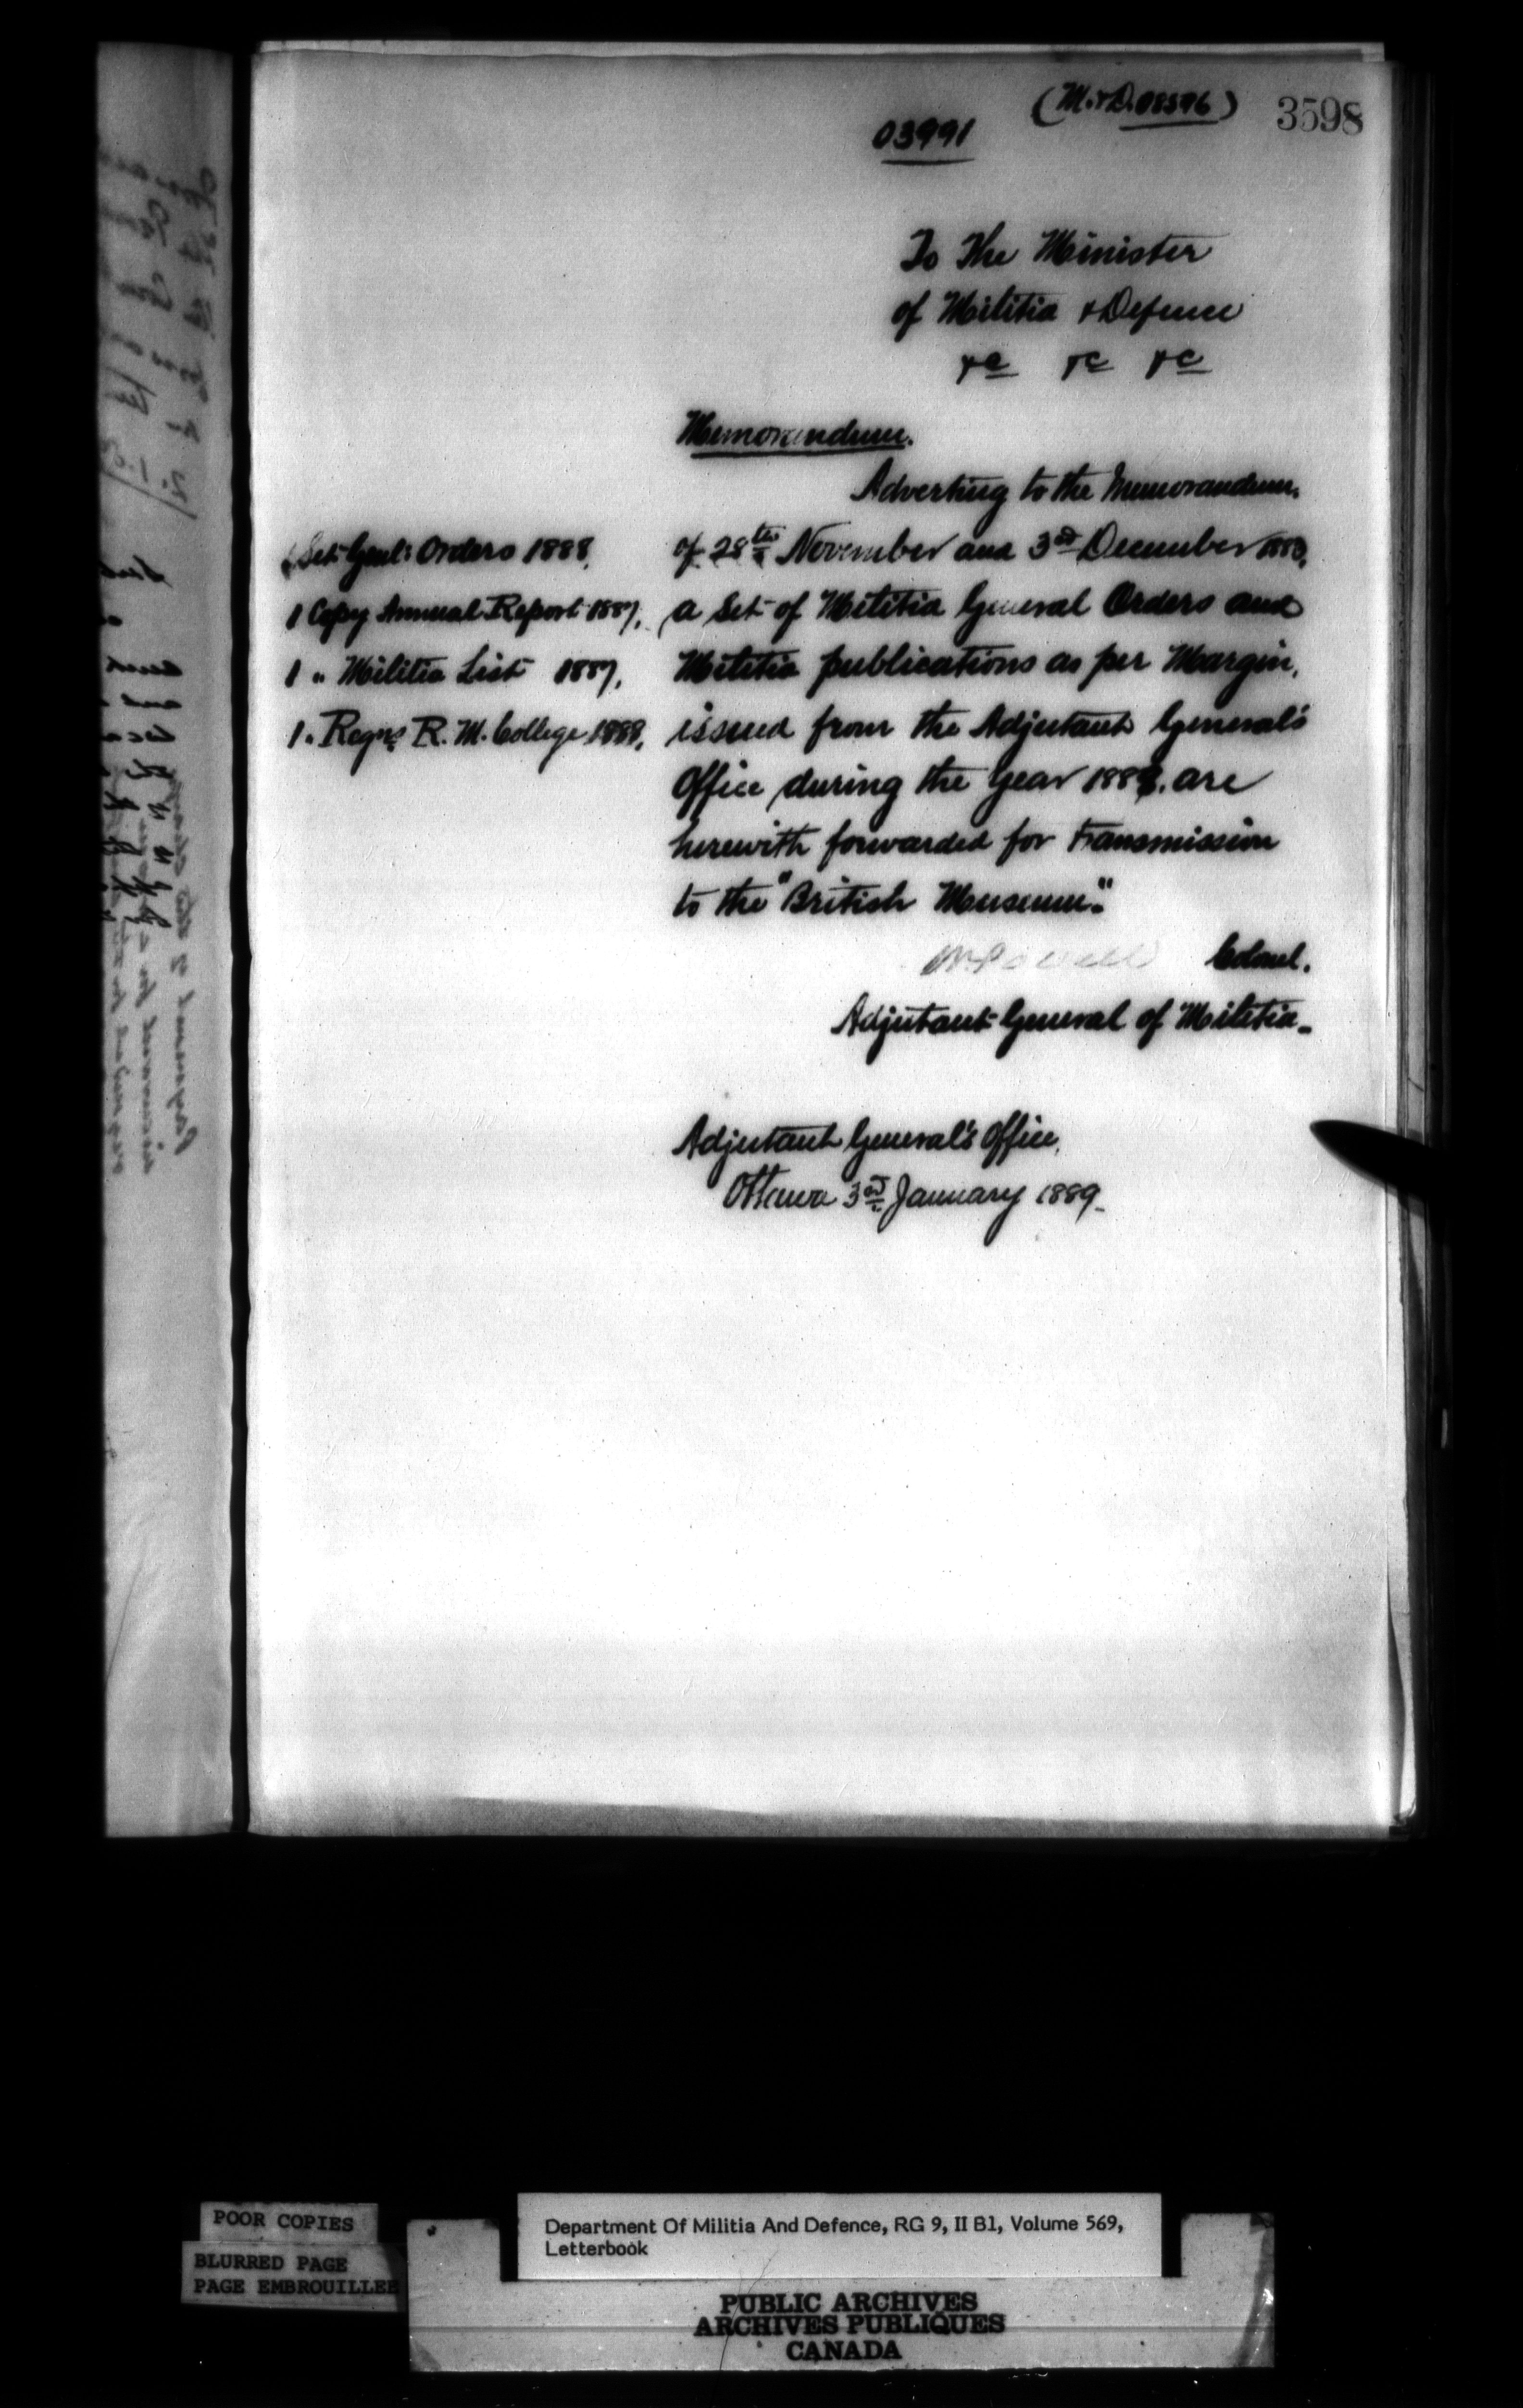 (M.&D. 08596)
3598
03991
To The Minister
of Militia & Defence
&c &c &c
Memorandum.
Adverting to the Memorandum,
of 28th November and 3rd December 1888,
a Set of Militia General Orders and
Militia publications as per Margin,
issued from the Adjutant General's
Office during the Year 1888. are
herewith forwarded for transmission
to the "British Museum".
1 Set Genl: Orders 1888,
1 Copy Annual Report 1887,
1 " Militia List 1887,
1 . Regns R. M. College 1888,
W Powell Colonel.
Adjutant General of Militia.
Adjutant General's Office,
Ottawa 3rd January 1889.
POOR COPIES
BLURRED PAGE
PAGE EMBROUILLEE
Department Of Militia And Defence, RG 9, II B1, Volume 569,
Letterbook
PUBLIC ARCHIVES
ARCHIVES PUBLIQUES
CANADA